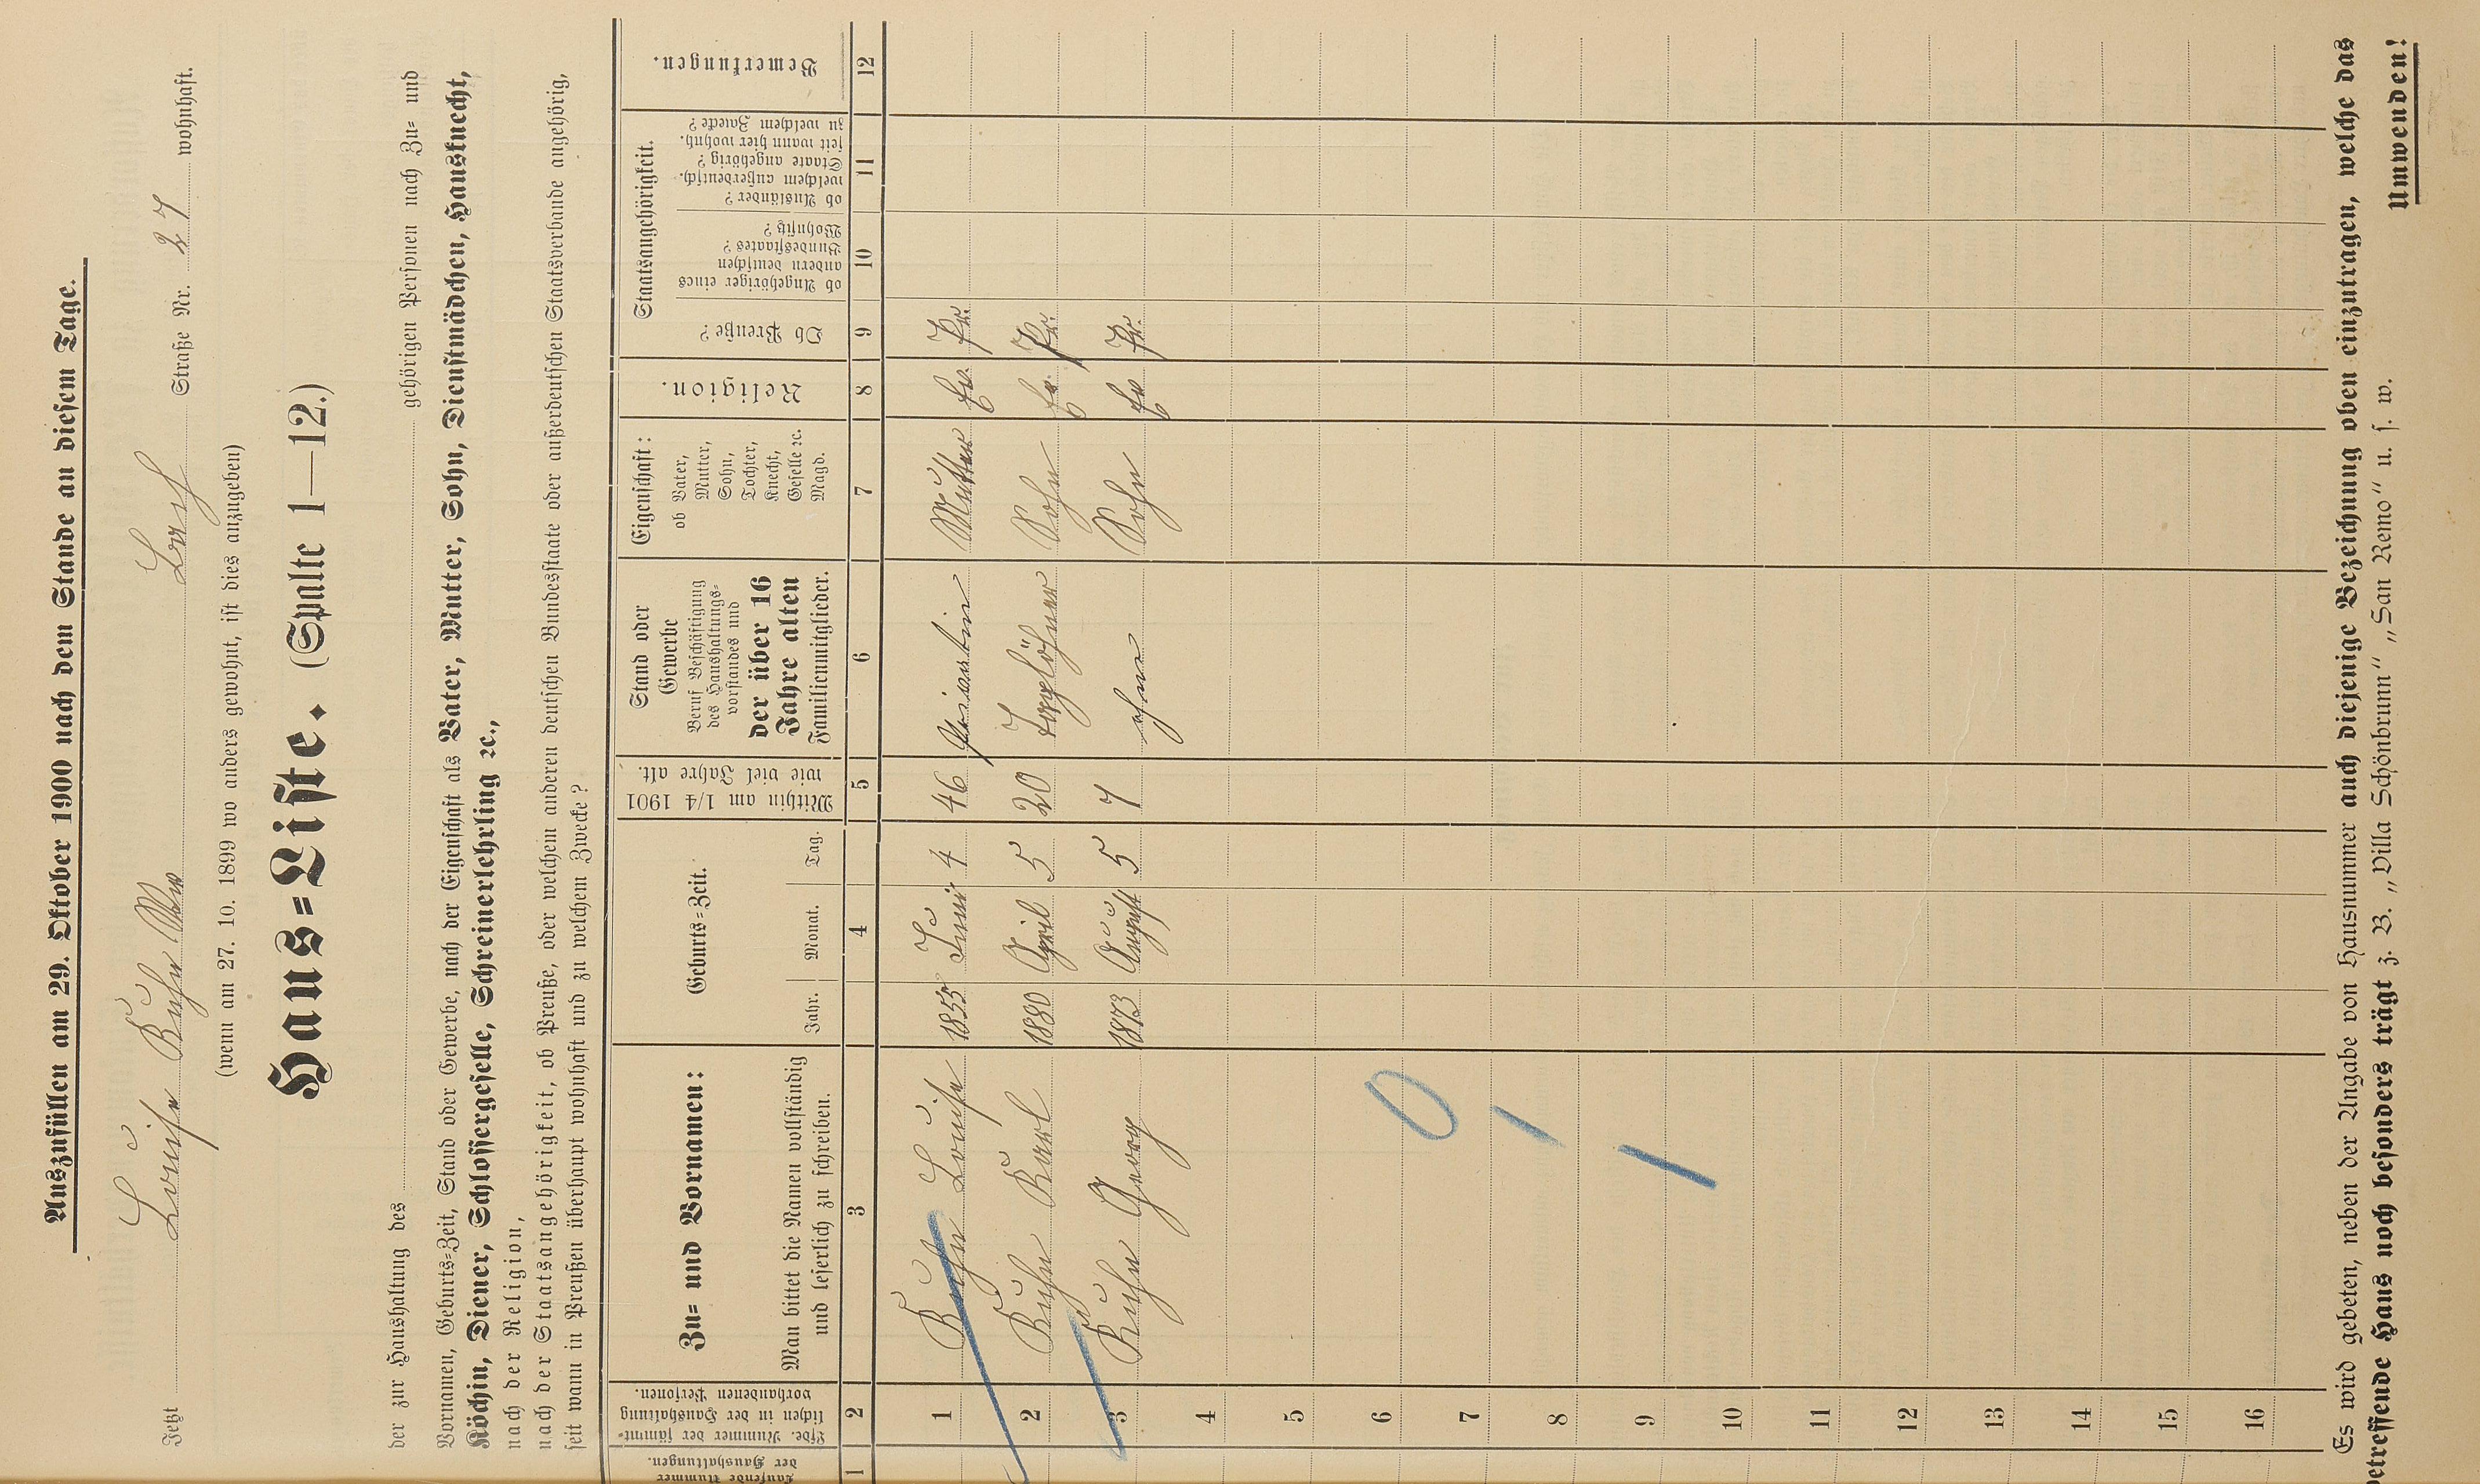 Auszufüllen am 29. Oktober 1900 nach dem Stande an diesem Tage.
Jetzt Louise Kuhn Ww Loch Straße Nr. 27 wohnhaft.
(wenn am 27. 10. 1899 wo anders gewohnt, ist dies anzugeben)
Haus=Liste. (Spalte 1—12.)
der zur Haushaltung des gehörigen Personen nach Zu= und
Vornamen, Geburts=Zeit, Stand oder Gewerbe, nach der Eigenschaft als Vater, Mutter, Sohn, Dienstmädchen, Hausknecht,
Köchin, Diener, Schlossergeselle, Schreinerlehrling ꝛc.,
nach der Religion,
nach der Staatsangehörigkeit, ob Preuße, oder welchem anderen deutschen Bundesstaate oder außerdeutschen Staatsverbande angehörig,
seit wann in Preußen überhaupt wohnhaft und zu welchem Zwecke?
Laufende Nummer der Haushaltungen.
Lfde. Nummer der sämmt=
lichen in der Haushaltung
vorhandenen Personen.
Zu= und Vornamen:
Man bittet die Namen vollständig
und leserlich zu schreiben.
Geburts=Zeit.
Jahr. Monat. Tag.
Mithin am 1/4 1901
wie viel Jahre alt.
Stand oder
Gewerbe
Beruf Beschäftigung
des Haushaltungs=
vorstandes und
der über 16
Jahre alten
Familienmitglieder.
Eigenschaft:
ob Vater,
Mutter,
Sohn,
Tochter,
Knecht,
Geselle ꝛc.
Magd.
Religion.
Staatsangehörigkeit.
Ob Preuße?
ob Angehöriger eines
andern deutschen
Bundesstaates?
Wohnsitz?
ob Ausländer?
welchem außerdeutsch.
Staate angehörig?
seit wann hier wohnh.
zu welchem Zwecke?
Bemerkungen.
1 2 3 4 5 6 7 8 9 10 11 12
1 Kuhn Louise 1855 Juni 4 46 Privatin Mutter Ev. Pr.
2 Kuhn Karl 1880 April 5 20 Taglöhner Sohn Ev. Pr.
3 Kuhn Georg 1873 August 5 7 ohne Sohn Ev. Pr.
4
5
6 0
7 1
8
9 1
10
11
12
13
14
15
16
Es wird gebeten, neben der Angabe von Hausnummer auch diejenige Bezeichnung oben einzutragen, welche das
betreffende Haus noch besonders trägt z. B. „Villa Schönbrunn" „San Remo" u. s. w.
Umwenden!